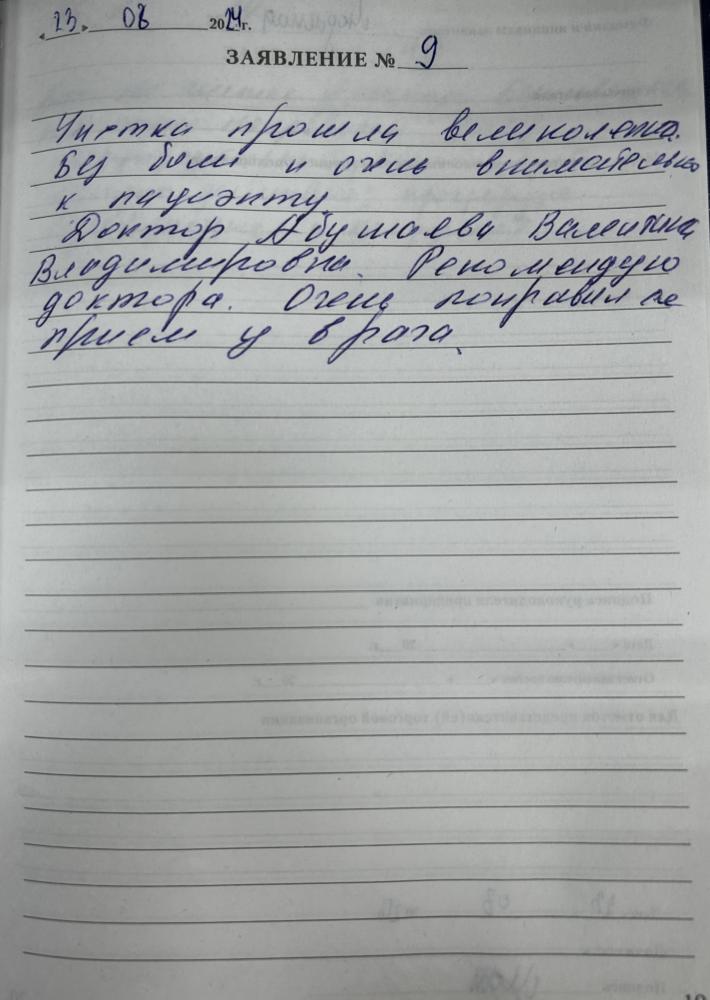 « 23 » 08 2024 г.
ЗАЯВЛЕНИЕ № 9
Чистка прошла великолепна.
Без боли и очень внимательно
к пациэнту
Доктор Абушаева Валентина
Владимировна. Рекомендую
доктора. Очень понравился
прием у врача.